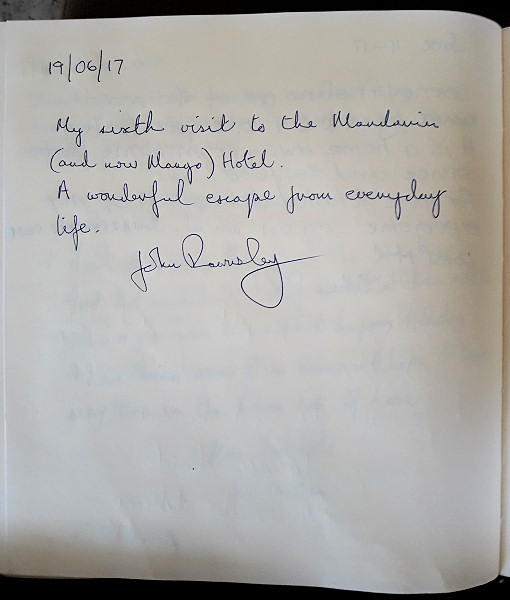 19/06/17
My sixth visit to the Mandarin
(and now Mango) Hotel.
A wonderful escape from everyday
life.
John Rawnsley